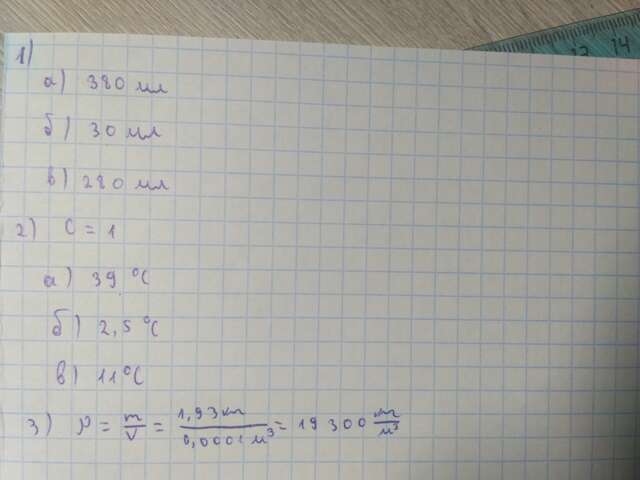 13 14
1)
а) 380 мл
б) 30 мл
в) 280 мл
2) C = 1
а) 39 °C
б) 2,5 °C
в) 11 °C
3) ρ = m/V = 1,93 кг/0,0001 м³ = 19 300 кг/м³